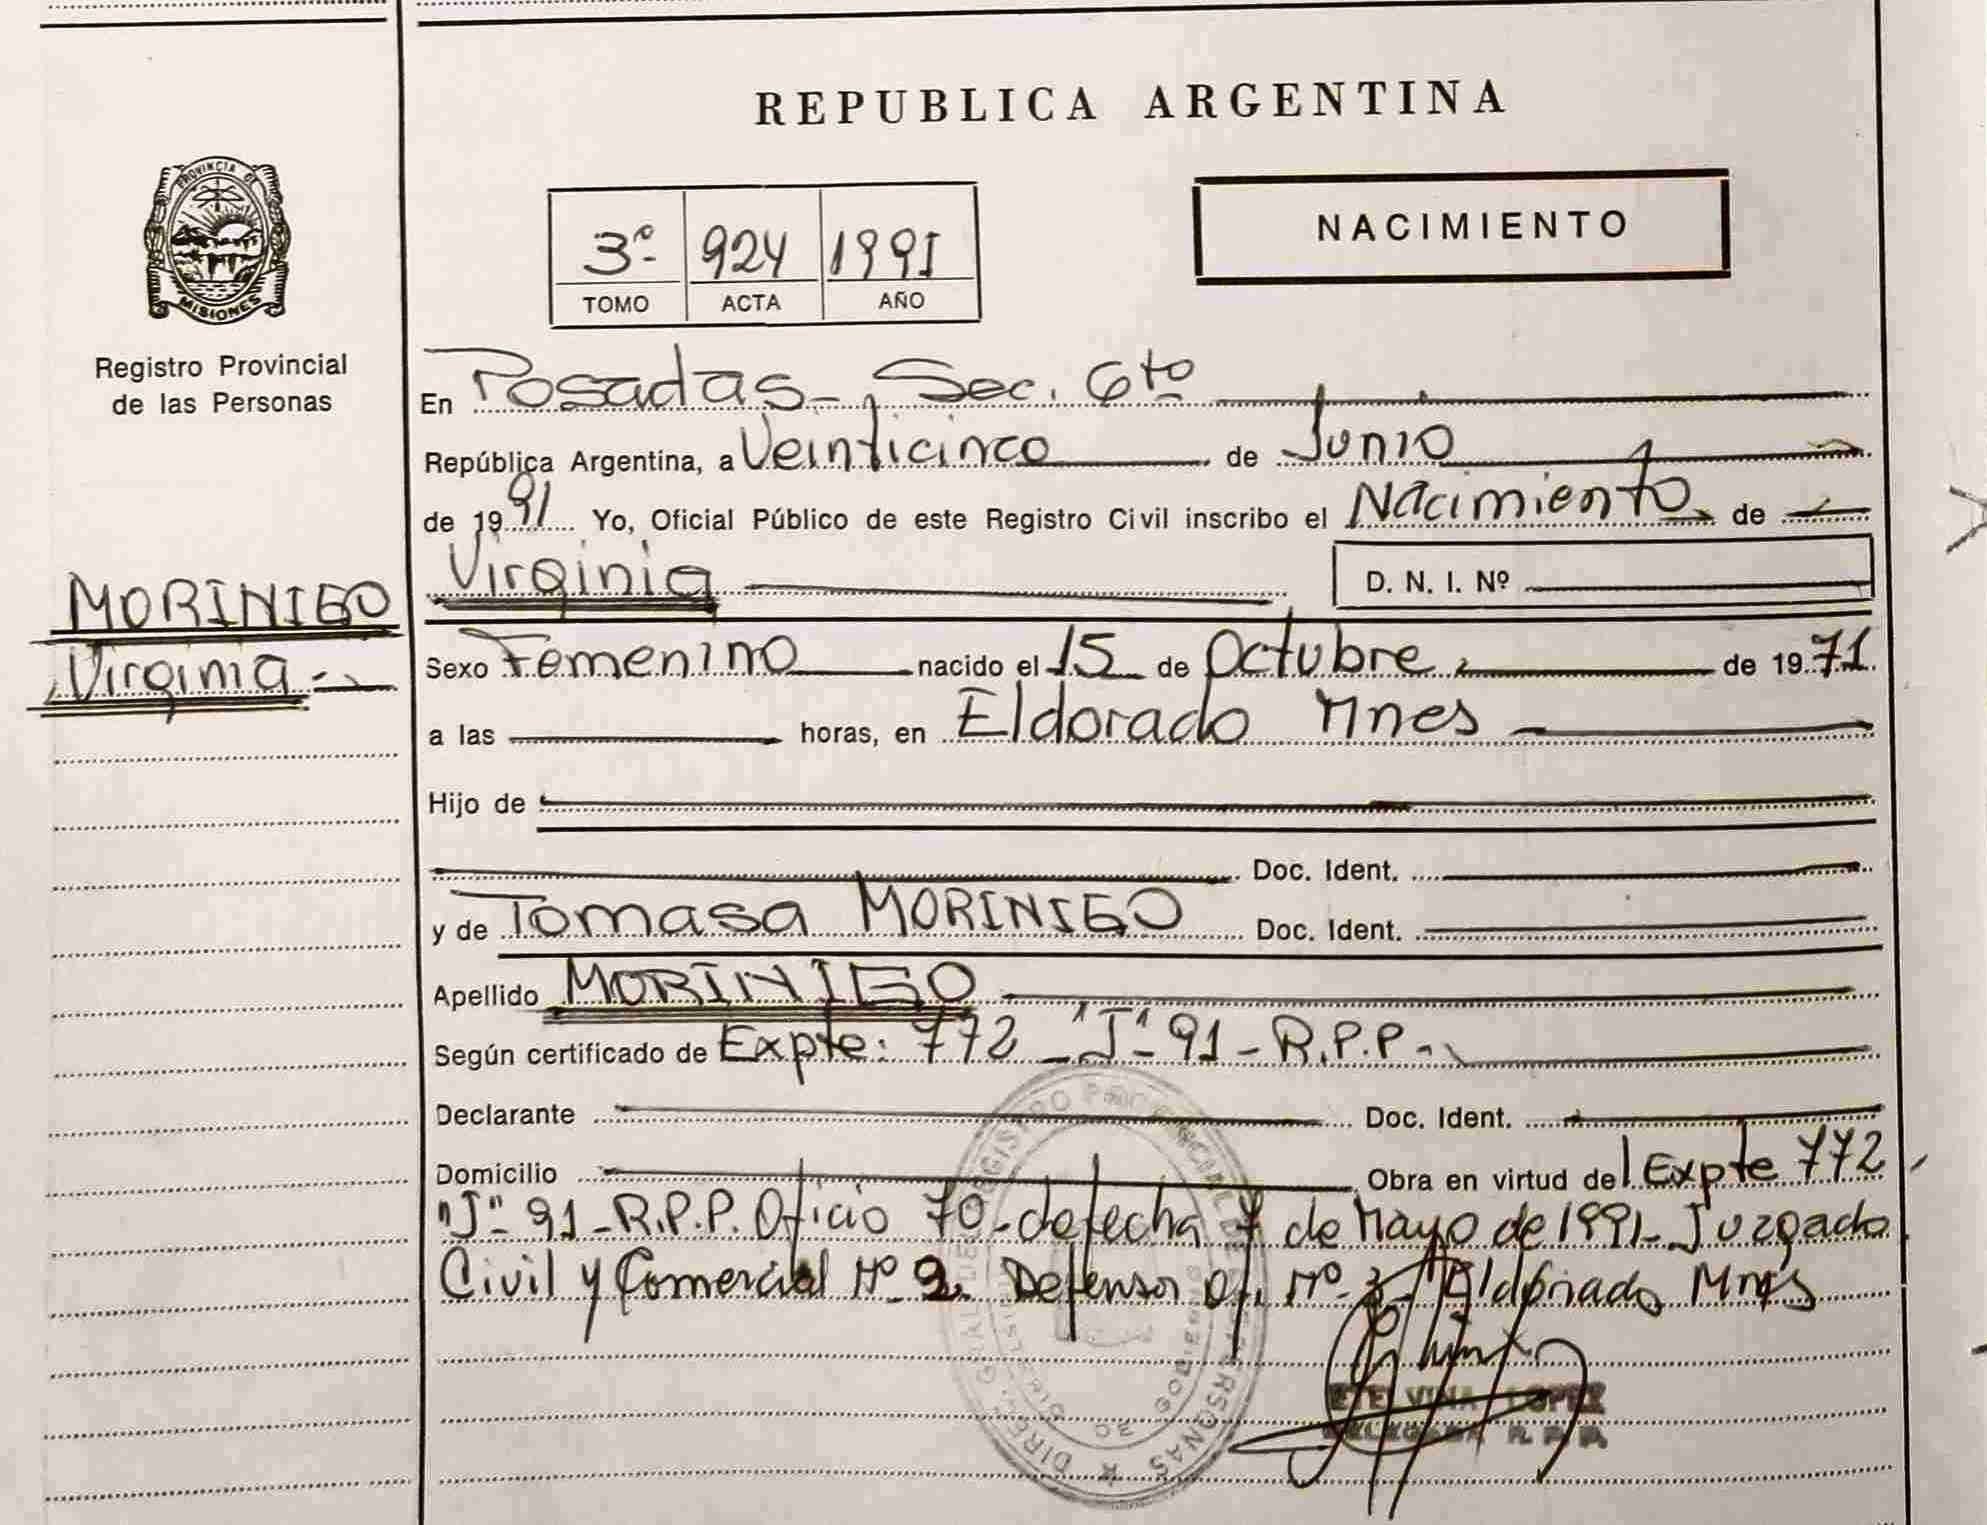 REPUBLICA ARGENTINA
PROVINCIA DE
MISIONES
Registro Provincial
de las Personas
NACIMIENTO
3º 924 1991
TOMO ACTA AÑO
En Posadas - Sec. 6to
República Argentina, a Veinticinco de Junio
de 1991 Yo, Oficial Público de este Registro Civil inscribo el Nacimiento de
Virginia D. N. I. Nº
MORINIGO
Virginia.-
Sexo Femenino nacido el 15 de Octubre de 1971
a las horas, en Eldorado Mnes
Hijo de
Doc. Ident.
y de Tomasa MORINIGO Doc. Ident.
Apellido MORINIGO
Según certificado de Expte: 772 - "J" - 91 - R.P.P. -
Declarante Doc. Ident.
Domicilio Obra en virtud del Expte 772
"J" - 91 - R.P.P. Oficio 70 - de fecha 7 de Mayo de 1991 - Juzgado
Civil y Comercial Nº 2. Defensor Of. Nº 3 - Eldorado Mnes
ETELVINA LOPEZ
R. P. P.